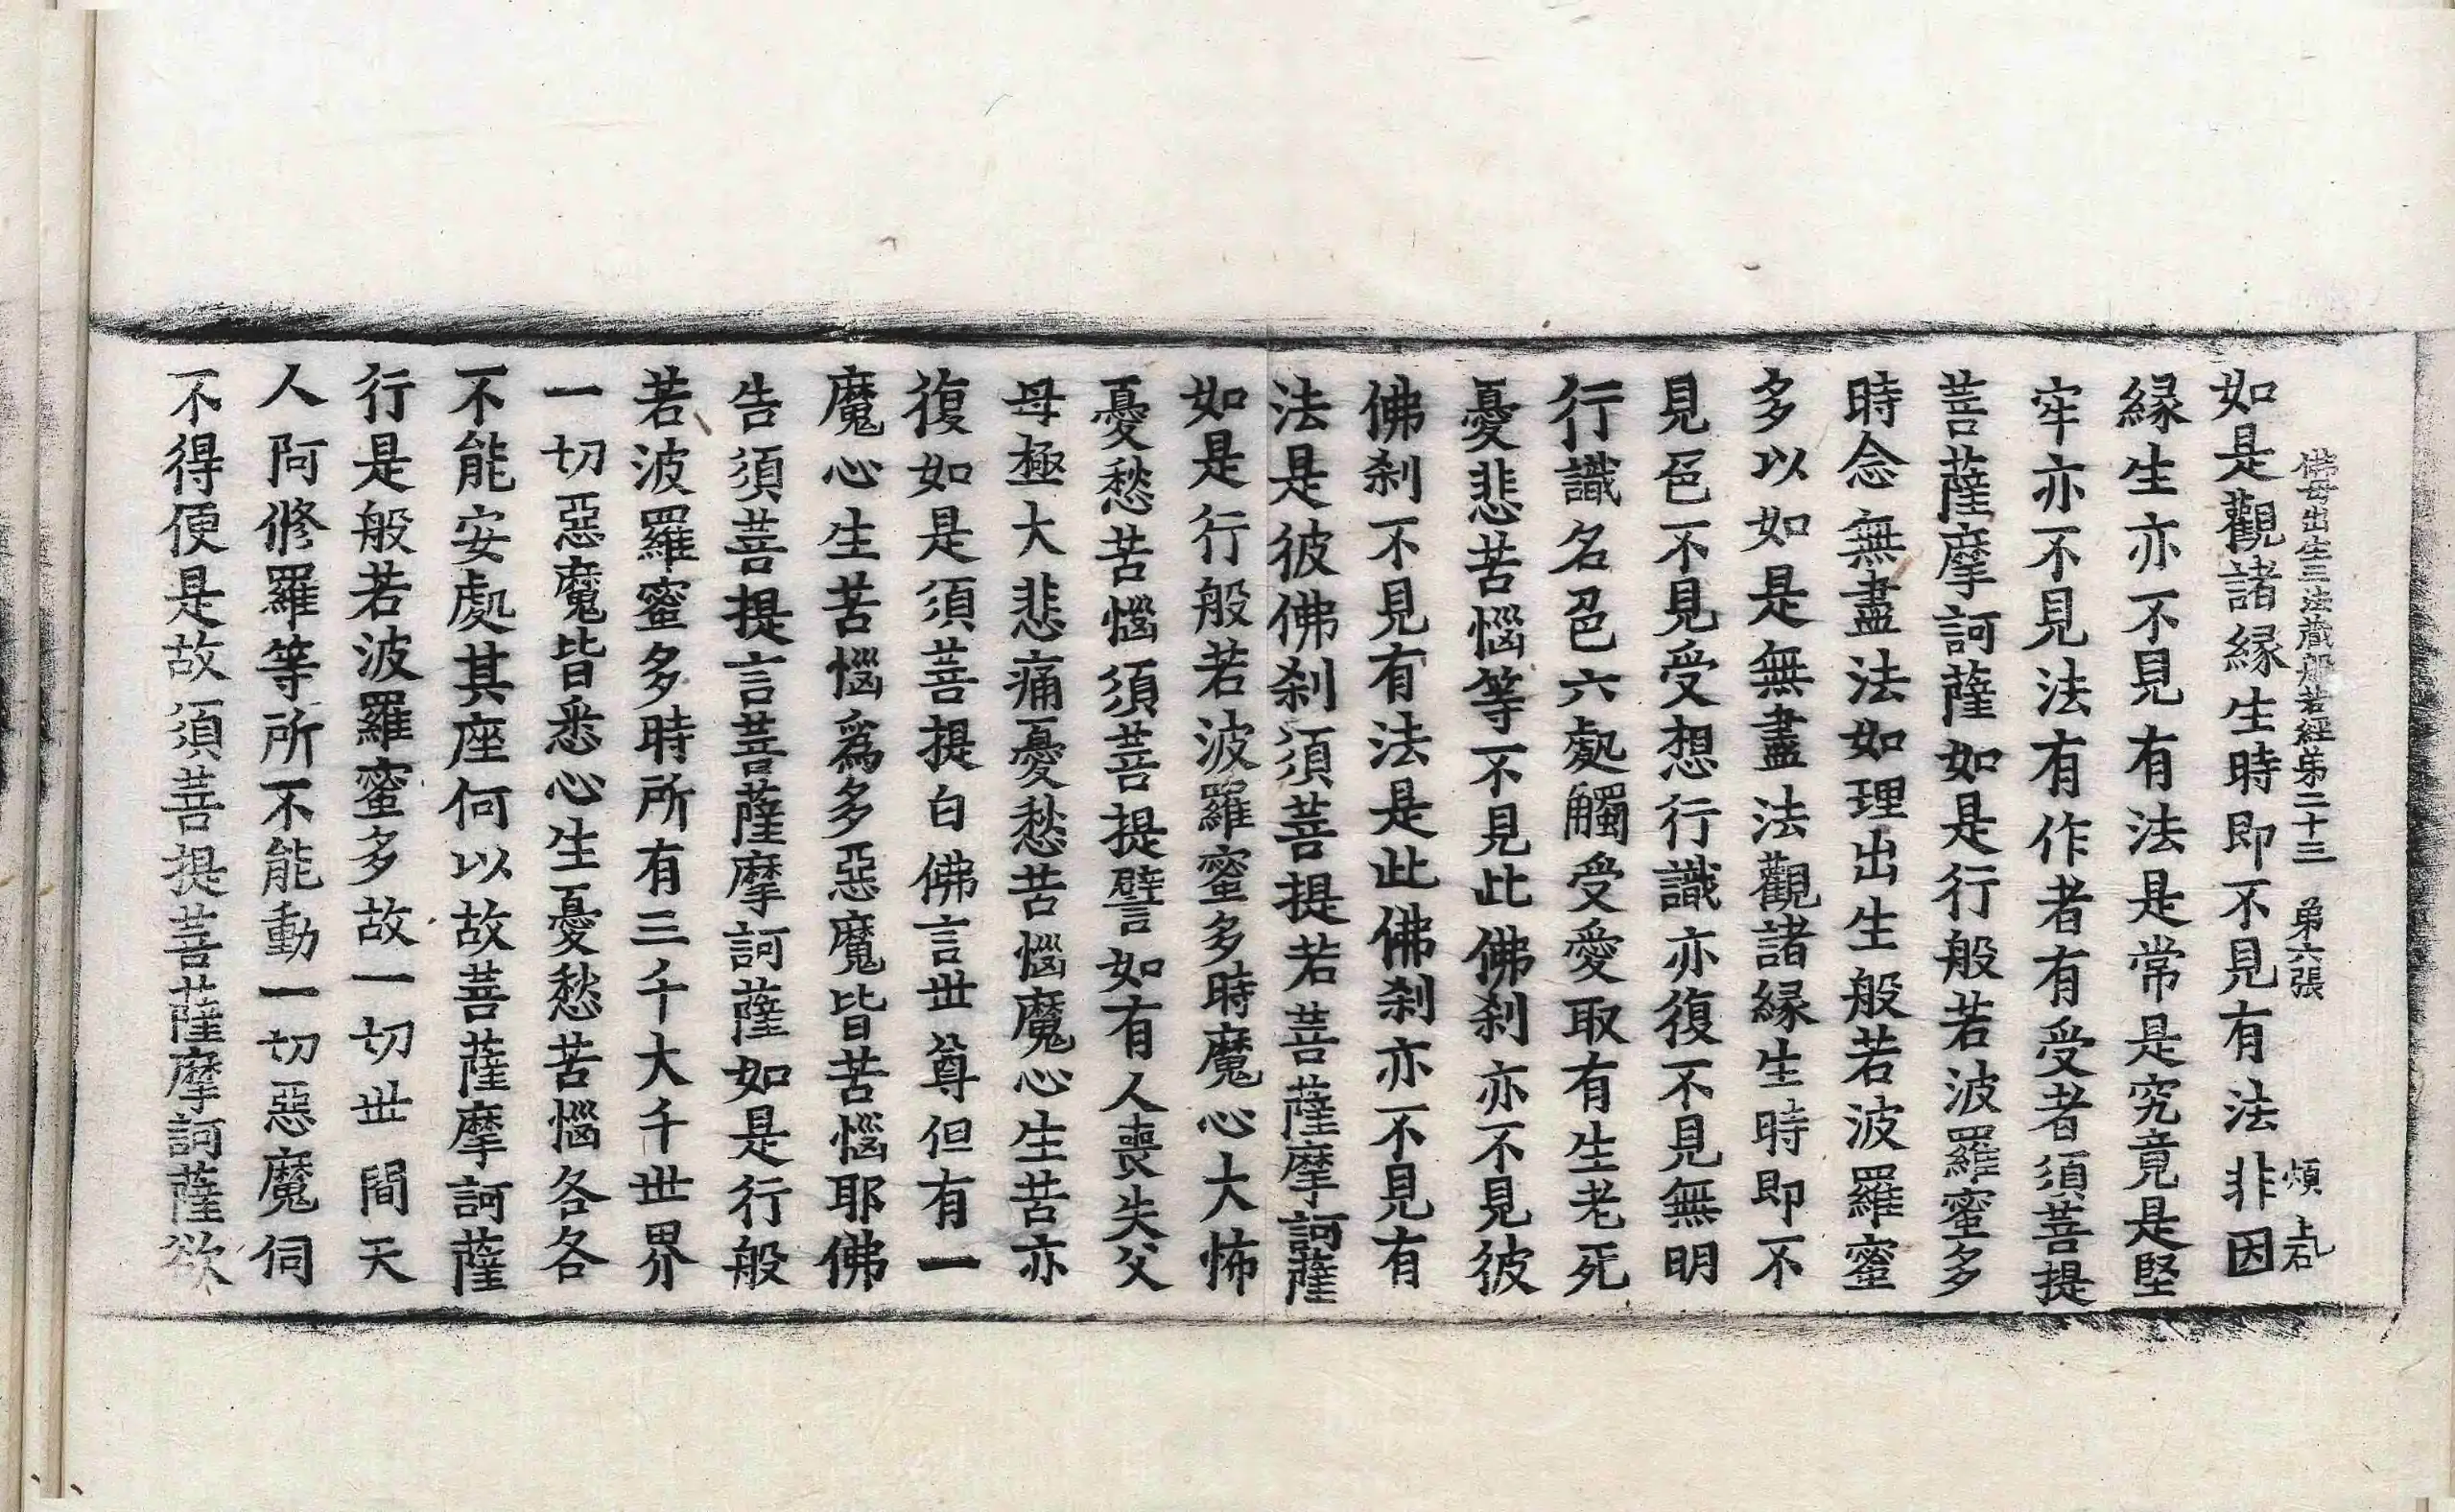 如是觀諸緣生時即不見有法非因
佛母出生三法藏般若經第二十三 第六張 煩
緣生亦不見有法是常是究竟是堅
牢亦不見法有作者有受者須菩提
菩薩摩訶薩如是行般若波羅蜜多
時念無盡法如理出生般若波羅蜜
多以如是無盡法觀諸緣生時即不
見色不見受想行識亦復不見無明
行識名色六處觸受愛取有生老死
憂悲苦惱等不見此佛刹亦不見彼
佛刹不見有法是此佛刹亦不見有
法是彼佛刹須菩提若菩薩摩訶薩
如是行般若波羅蜜多時魔心大怖
憂愁苦惱須菩提譬如有人喪失父
母極大悲痛憂愁苦惱魔心生苦亦
復如是須菩提白佛言世尊但有一
魔心生苦惱爲多惡魔皆苦惱耶佛
告須菩提言菩薩摩訶薩如是行般
若波羅蜜多時所有三千大千世界
一切惡魔皆悉心生憂愁苦惱各各
不能安處其座何以故菩薩摩訶薩
行是般若波羅蜜多故一切世間天
人阿修羅等所不能動一切惡魔伺
不得便是故須菩提菩薩摩訶薩欲